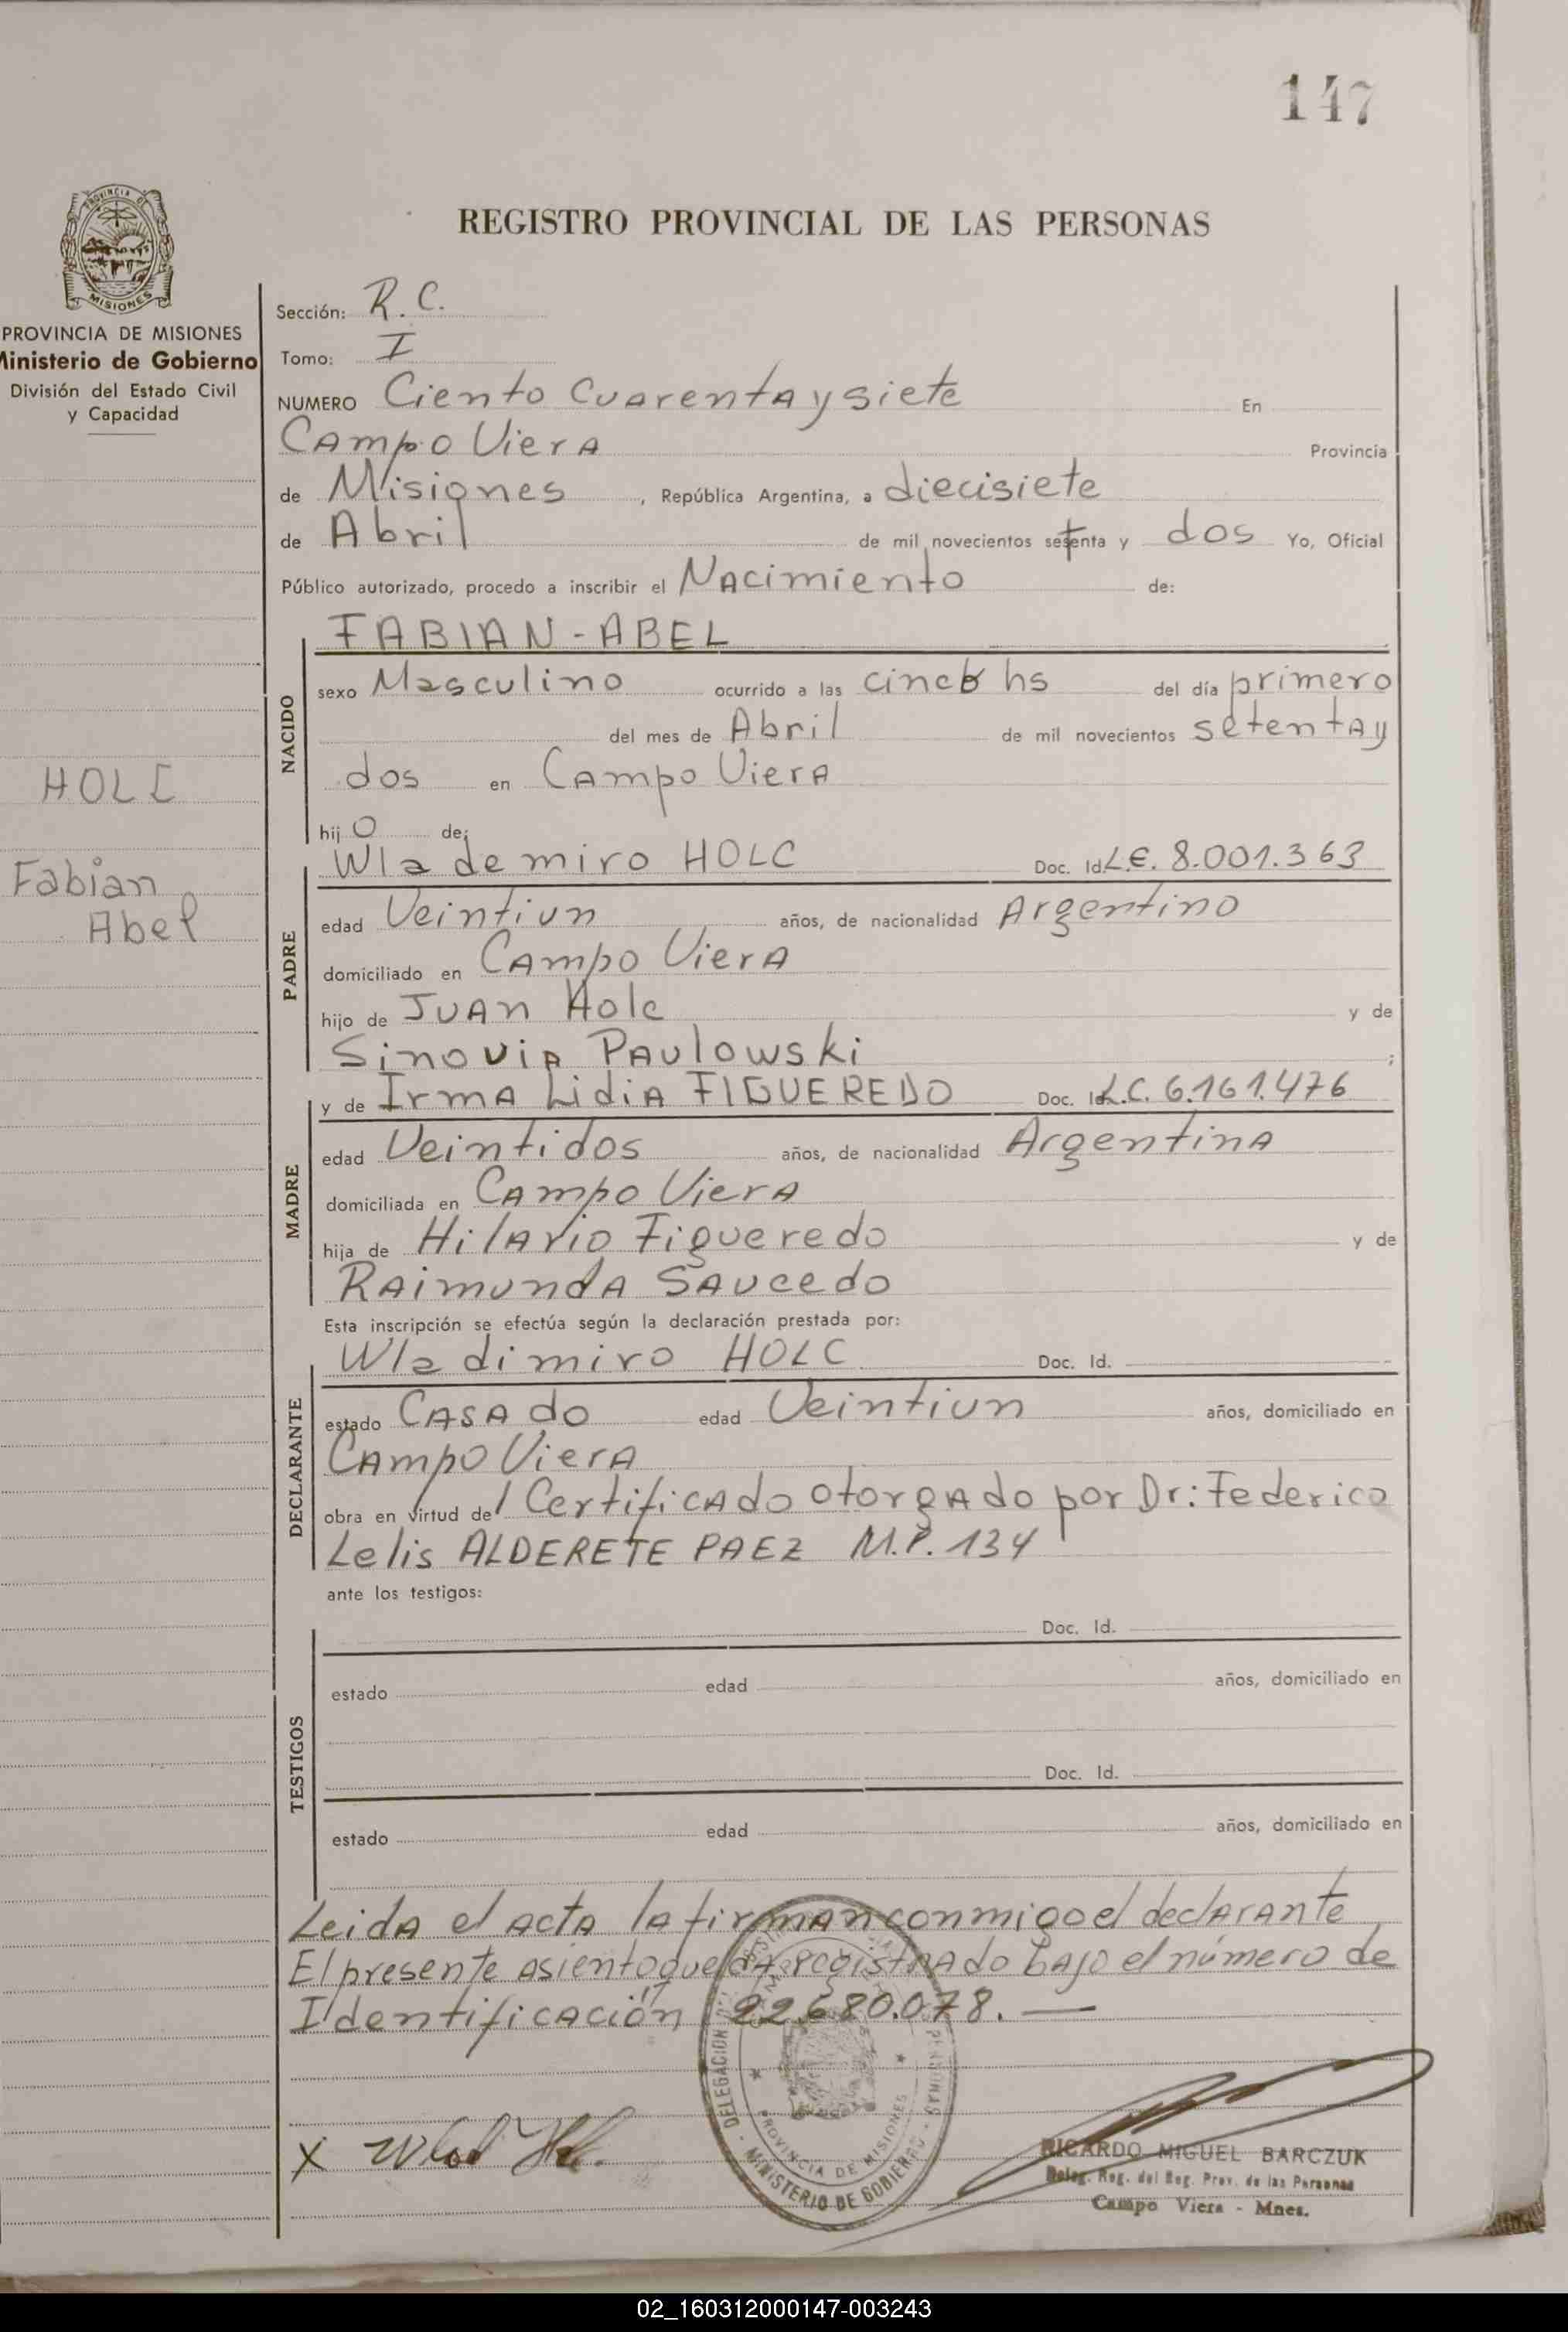 147
PROVINCIA DE
MISIONES
PROVINCIA DE MISIONES
Ministerio de Gobierno
División del Estado Civil
y Capacidad
HOLC
Fabian
Abel
REGISTRO PROVINCIAL DE LAS PERSONAS
Sección: R.C.
Tomo: I
NUMERO Ciento Cuarenta y siete En
Campo Viera Provincia
de Misiones, República Argentina, a diecisiete
de Abril de mil novecientos setenta y dos Yo, Oficial
Público autorizado, procedo a inscribir el Nacimiento de:
NACIDO
FABIAN-ABEL
sexo Masculino ocurrido a las cinco hs del día primero
del mes de Abril de mil novecientos setenta y
dos en Campo Viera
hijo de:
PADRE
Wlademiro HOLC Doc. Id. L.E. 8.001.363
edad Veintiun años, de nacionalidad Argentino
domiciliado en Campo Viera
hijo de Juan Holc y de
Sinovia Paulowski ;
MADRE
y de Irma Lidia FIGUEREDO Doc. Id. L.C. 6.161.476
edad Veintidos años, de nacionalidad Argentina
domiciliada en Campo Viera
hija de Hilario Figueredo y de
Raimunda Saucedo
Esta inscripción se efectúa según la declaración prestada por:
DECLARANTE
Wladimiro HOLC Doc. Id.
estado Casado edad Veintiun años, domiciliado en
Campo Viera
obra en virtud del Certificado otorgado por Dr: Federico
Lelis ALDERETE PAEZ M.P. 134
ante los testigos:
TESTIGOS
Doc. Id.
estado edad años, domiciliado en
Doc. Id.
estado edad años, domiciliado en
Leida el acta la firman conmigo el declarante
El presente asiento queda registrado bajo el número de
Identificación 22.680.078.—
X
DELEGACION
PROVINCIA DE MISIONES
MINISTERIO DE GOBIERNO
RICARDO MIGUEL BARCZUK
Deleg. Reg. del Reg. Prov. de las Personas
Campo Viera - Mnes.
02_160312000147-003243